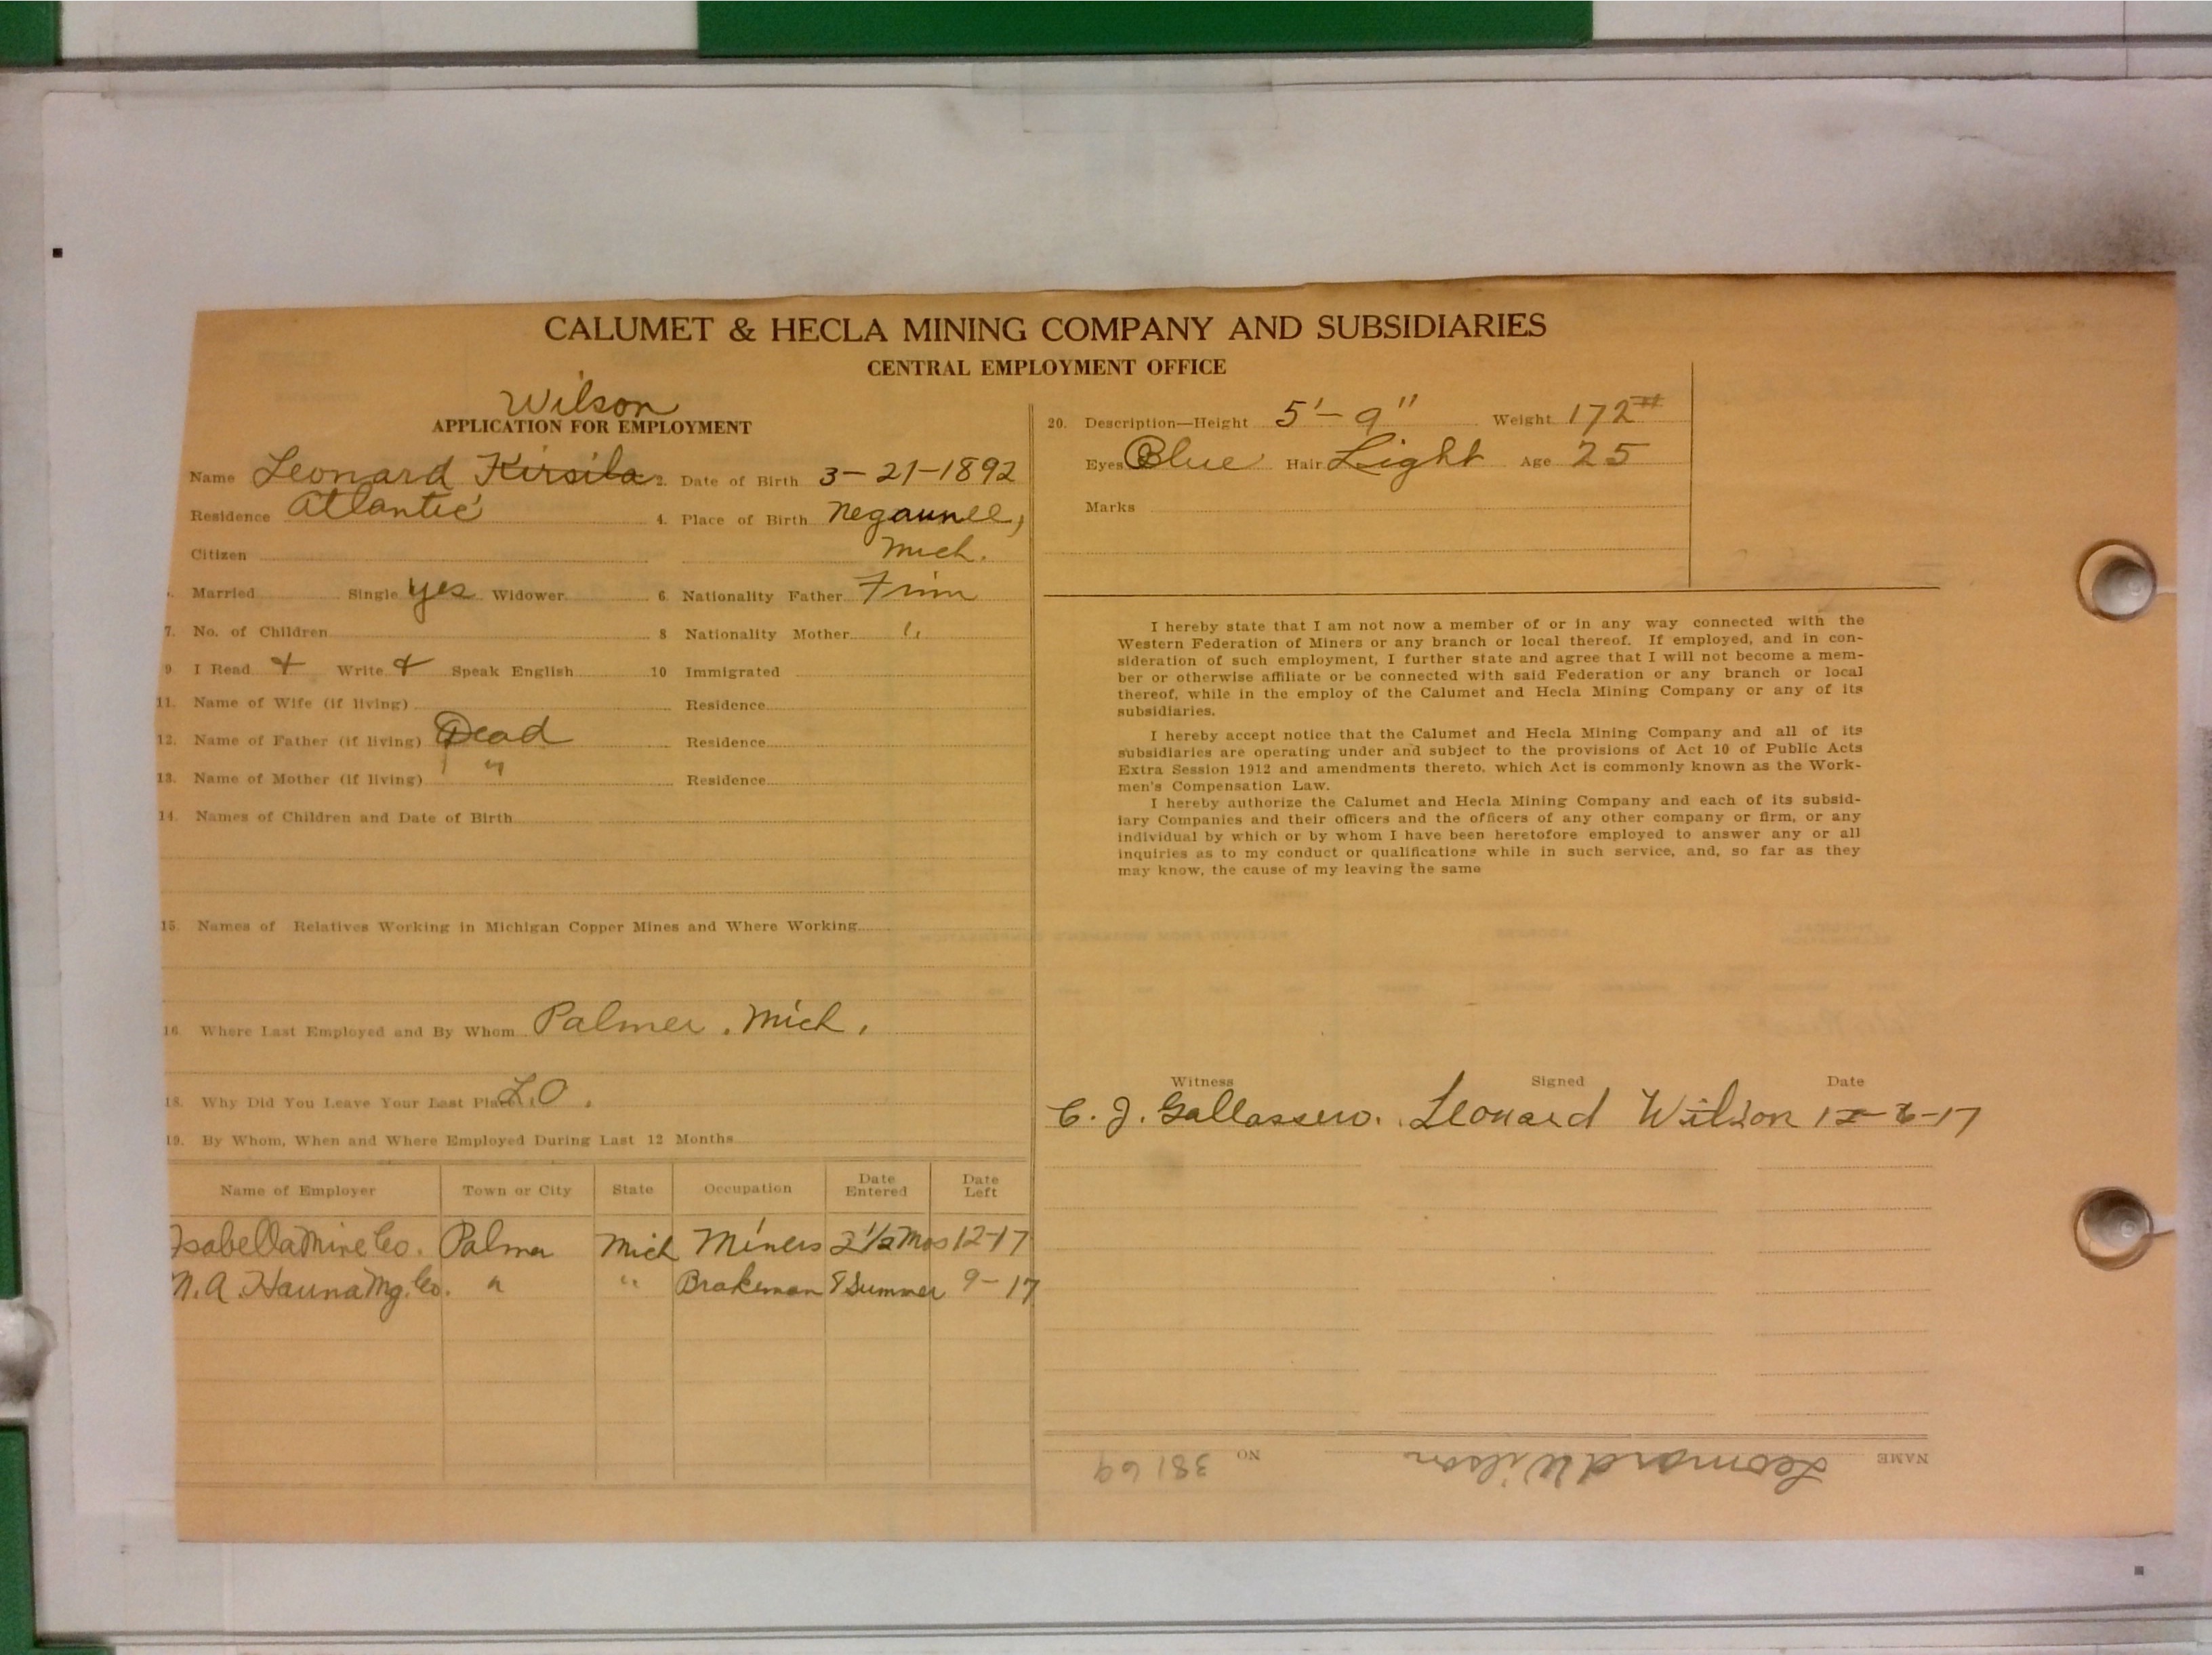 CALUMET & HECLA MINING COMPANY AND SUBSIDIARIES
CENTRAL EMPLOYMENT OFFICE
Wilson
APPLICATION FOR EMPLOYMENT
Name Leonard Kirsila 2. Date of Birth 3-21-1892
Residence Atlantic 4. Place of Birth Negaunee,
Citizen Mich.
Married Single yes Widower 6. Nationality Father Finn
7. No. of Children 8 Nationality Mother "
9 I Read + Write + Speak English 10 Immigrated
11. Name of Wife (if living) Residence
12. Name of Father (if living) Dead Residence
13. Name of Mother (if living) " Residence
14. Names of Children and Date of Birth
15. Names of Relatives Working in Michigan Copper Mines and Where Working
16. Where Last Employed and By Whom Palmer, Mich.
18. Why Did You Leave Your Last Place L.O.
19. By Whom, When and Where Employed During Last 12 Months
Name of Employer Town or City State Occupation Date Entered Date Left
Isabella Mine Co. Palmer Mich Miners 2 1/2 Mos 12-17
Hanna Mg. Co. " " Brakeman Summer 9-17
20. Description—Height 5'-9" Weight 172#
Eyes Blue Hair Light Age 25
Marks
I hereby state that I am not now a member of or in any way connected with the
Western Federation of Miners or any branch or local thereof. If employed, and in con-
sideration of such employment, I further state and agree that I will not become a mem-
ber or otherwise affiliate or be connected with said Federation or any branch or local
thereof, while in the employ of the Calumet and Hecla Mining Company or any of its
subsidiaries.
I hereby accept notice that the Calumet and Hecla Mining Company and all of its
subsidiaries are operating under and subject to the provisions of Act 10 of Public Acts
Extra Session 1912 and amendments thereto, which Act is commonly known as the Work-
men's Compensation Law.
I hereby authorize the Calumet and Hecla Mining Company and each of its subsid-
iary Companies and their officers and the officers of any other company or firm, or any
individual by which or by whom I have been heretofore employed to answer any or all
inquiries as to my conduct or qualifications while in such service, and, so far as they
may know, the cause of my leaving the same
Witness Signed Date
C. J. Leonard Wilson
NAME Leonard Wilson NO 38169